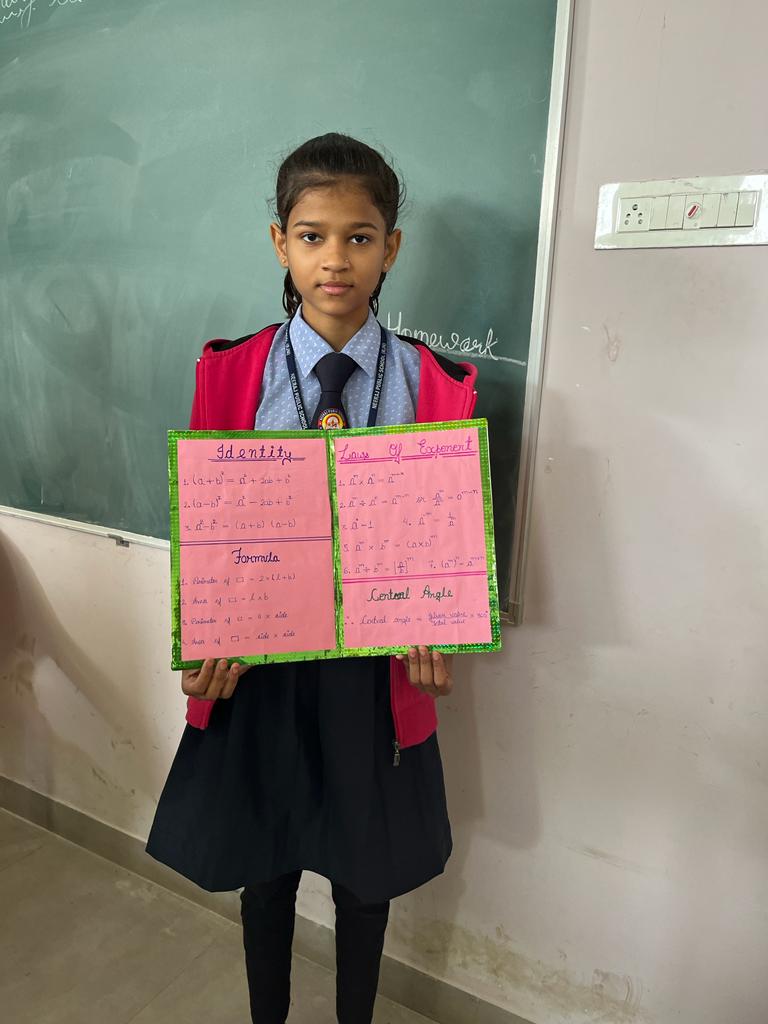 Homework
NEERAJ PUBLIC SCHOOL
Identity
1. (a+b)² = a² + 2ab + b²
2. (a-b)² = a² - 2ab + b²
3. a² - b² = (a+b) (a-b)
Formula
1. Perimeter of □ = 2×(l+b)
2. Area of □ = l×b
3. Perimeter of □ = 4 × side
4. Area of □ = side × side
Laws Of Exponent
1. aᵐ × aⁿ = aᵐ⁺ⁿ
2. aᵐ ÷ aⁿ = aᵐ⁻ⁿ or aᵐ/aⁿ = aᵐ⁻ⁿ
3. a° = 1 4. a⁻ᵐ = 1/aᵐ
5. aᵐ × bᵐ = (a×b)ᵐ
6. aᵐ ÷ bᵐ = [a/b]ᵐ 7. (aᵐ)ⁿ = aᵐˣⁿ
Central Angle
∴ Central angle = given value/total value × 360°